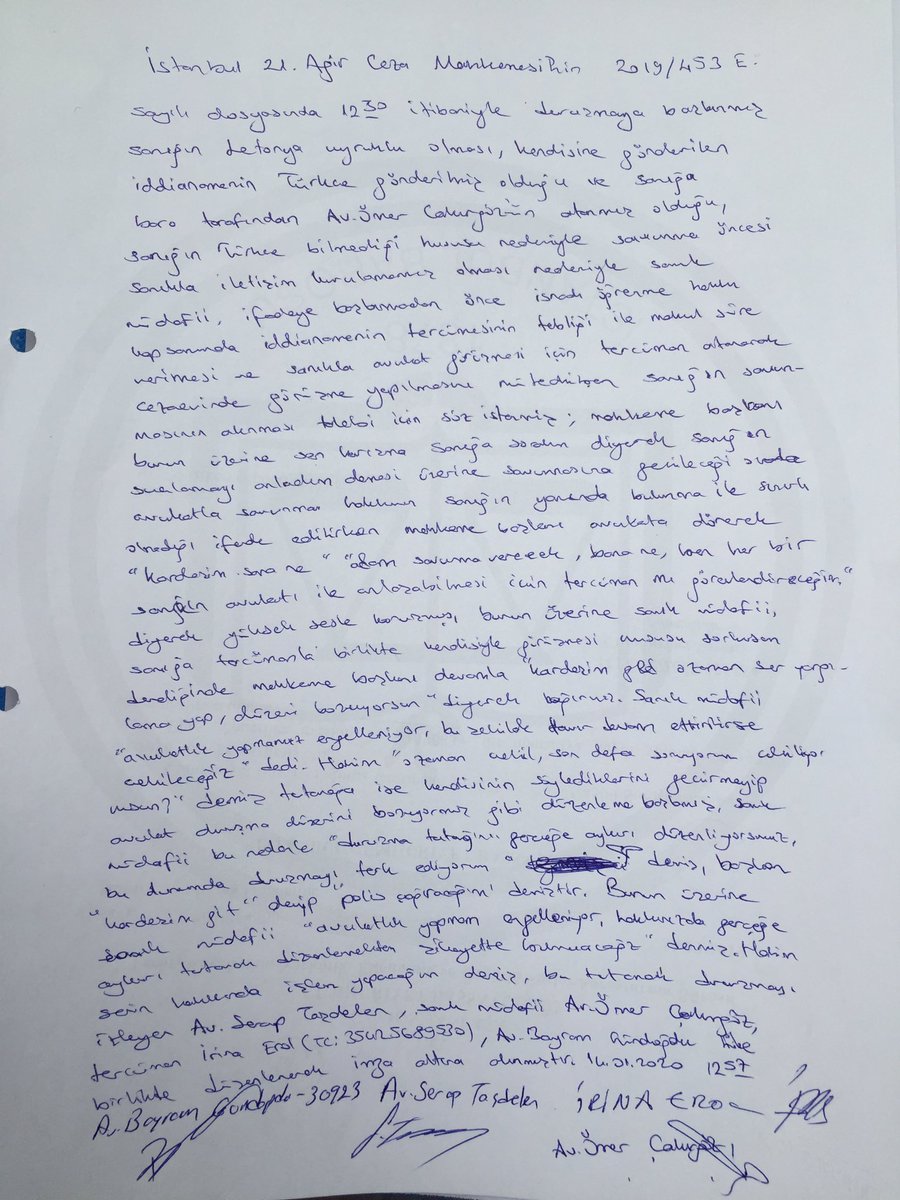 İstanbul 21. Ağır Ceza Mahkemesinin 2019/453 E.
sayılı dosyasında 12:30 itibariyle duruşmaya başlanmış
sanığın Letonya uyruklu olması, kendisine gönderilen
iddianamenin Türkçe gönderilmiş olduğu ve sanığa
baro tarafından Av. Ömer Çakırgöz'ün atanmış olduğu,
sanığın Türkçe bilmediği hususu nedeniyle savunma öncesi
sanıkla iletişim kurulamamış olması nedeniyle sanık
müdafii, ifadeye başlamadan önce isnadı öğrenme hakkı
kapsamında iddianamenin tercümesinin tebliği ile makul süre
verilmesi ve sanıkla avukat görüşmesi için tercüman atanarak
cezaevinde görüşme yapılmasını müteakiben sanığın savun-
masının alınması talebi için söz istemiş; mahkeme başkanı
bunun üzerine sen karışma sanığa sordum diyerek sanığın
suçlamayı anladım demesi üzerine savunmasına geçileceği
avukatla savunma hakkının sanığın yanında bulunma ile sınırlı
olmadığı ifade edilirken mahkeme başkanı avukata dönerek
"kardeşim sana ne" "adam savunma verecek, bana ne, ben her bir
sanığın avukatı ile anlaşabilmesi için tercüman mı görevlendireceğim"
diyerek yüksek sesle konuşmuş, bunun üzerine sanık müdafii,
sanığa tercümanla birlikte kendisiyle görüşmesi hususu sorulsun
dendiğinde mahkeme başkanı devamla "kardeşim gel o zaman sen yargı-
lama yap, düzeni bozuyorsun" diyerek bağırmış. Sanık müdafii
"avukatlık yapmamız engelleniyor, bu şekilde tavır devam ettirilirse
çekileceğiz" dedi. Hakim "o zaman çekil, son defa soruyorum çekiliyor
musun?" demiş tutanağa ise kendisinin söylediklerini geçirmeyip
avukat duruşma düzenini bozuyormuş gibi düzenleme başlamış, sanık
müdafii bu nedenle "duruşma tutağını gerçeğe aykırı düzenliyorsunuz,
bu durumda duruşmayı terk ediyorum" demiş, başkan
"kardeşim git" deyip "polis çağıracağım" demiştir. Bunun üzerine
sanık müdafii "avukatlık yapmam engelleniyor, hakkınızda gerçeğe
aykırı tutanak düzenlemekten şikayette bulunacağız" demiş. Hakim
senin hakkında işlem yapacağım demiş, bu tutanak duruşmayı
izleyen Av. Serap Taşdelen, sanık müdafii Av. Ömer Çakırgöz,
tercüman İrina Erol (TC: 35425689530), Av. Bayram Gündoğdu ile
birlikte düzenlenerek imza altına alınmıştır. 14.01.2020 12:57
Av. Bayram Gündoğdu-30923 Av. Serap Taşdelen İRİNA EROL
Av. Ömer Çakırgöz